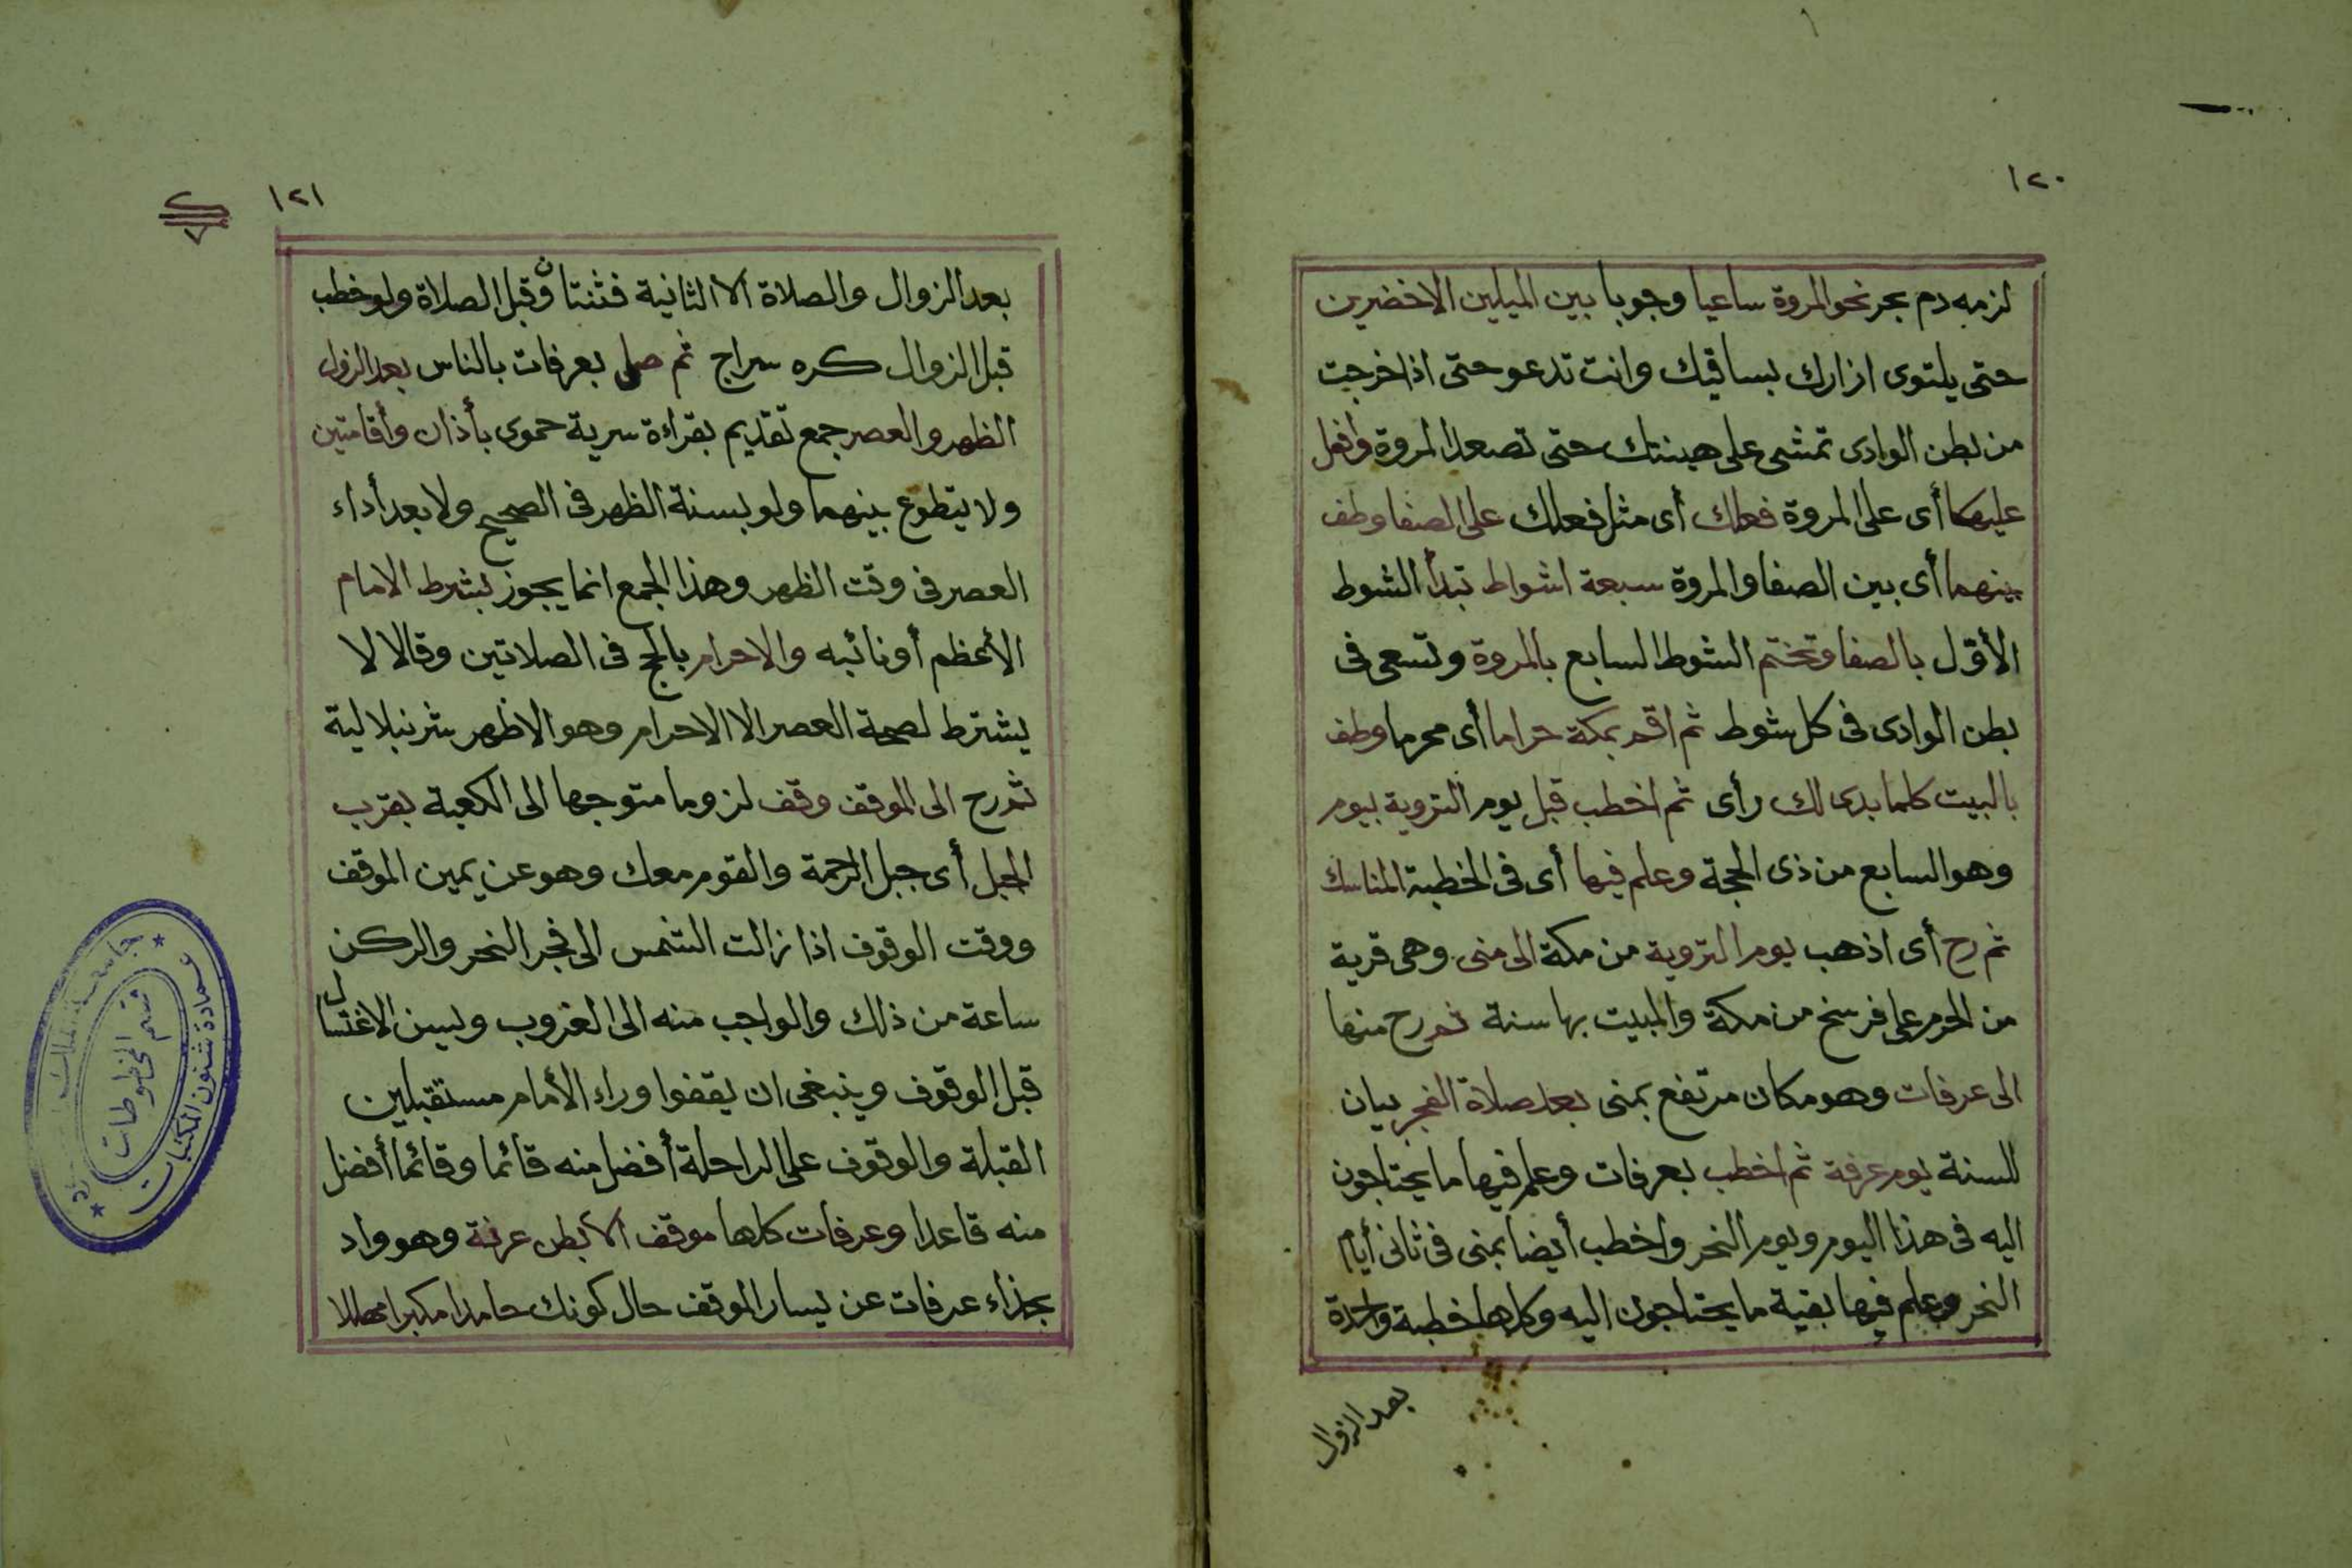 ١٢٠
لزمه دم بحر نحو المروة ساعيا وجوبا بين الميلين الاخضرين
حتى يلتوى ازارك بساقيك وانت تدعو حتى اذا خرجت
من بطن الوادى تمشى على هينتك حتى تصعد المروة وافعل
عليها أى على المروة فعلك أى مثل فعلك على الصفا وطف
بينهما أى بين الصفا والمروة سبعة اشواط تبدأ الشوط
الأول بالصفا وتختم الشوط السابع بالمروة وتسعى فى
بطن الوادى فى كل شوط ثم اقم بمكة حراما أى محرما وطف
بالبيت كلما بدى لك رأى ثم اخطب قبل يوم التروية بيوم
وهو السابع من ذى الحجة وعلم فيها أى فى الخطبة المناسك
ثم رح أى اذهب يوم التروية من مكة الى منى وهى قرية
من الحرم على فرسخ من مكة والمبيت بها سنة ثم رح منها
الى عرفات وهو مكان مرتفع بمنى بعد صلاة الفجر بيان
للسنة يوم عرفة ثم اخطب بعرفات وعلم فيها ما يحتاجون
اليه فى هذا اليوم ويوم النحر واخطب أيضا بمنى فى ثانى أيام
النحر وعلم فيها بقية ما يحتاجون اليه وكلها خطبة واحدة
بعد الزوال
١٢١
بعد الزوال والصلاة الا الثانية فثنتان وقبل الصلاة ولو خطب
قبل الزوال كره سراج ثم صلى بعرفات بالناس بعد الزوال
الظهر والعصر جمع تقديم بقراءة سرية حموى بأذان وأقامتين
ولا يتطوع بينهما ولو بسنة الظهر فى الصحيح ولا بعد أداء
العصر فى وقت الظهر وهذا الجمع انما يجوز بشرط الامام
الأعظم أو نائبه والاحرام بالحج فى الصلاتين وقالا لا
يشترط لصحة العصر الا الاحرام وهو الاظهر شرنبلالية
ثم رح الى الموقف وقف لزوما متوجها الى الكعبة بقرب
الجبل أى جبل الرحمة والقوم معك وهو عن يمين الموقف
ووقت الوقوف اذا زالت الشمس الى فجر النحر والركن
ساعة من ذلك والواجب منه الى الغروب ويسن الاغتسال
قبل الوقوف وينبغى ان يقفوا وراء الأمام مستقبلين
القبلة والوقوف على الراحلة أفضل منه قائما وقائما أفضل
منه قاعدا وعرفات كلها موقف الا بطن عرنة وهو واد
بحذاء عرفات عن يسار الموقف حال كونك حامدا مكبرا مهللا
عمادة شئون المكتبات
قسم المخطوطات